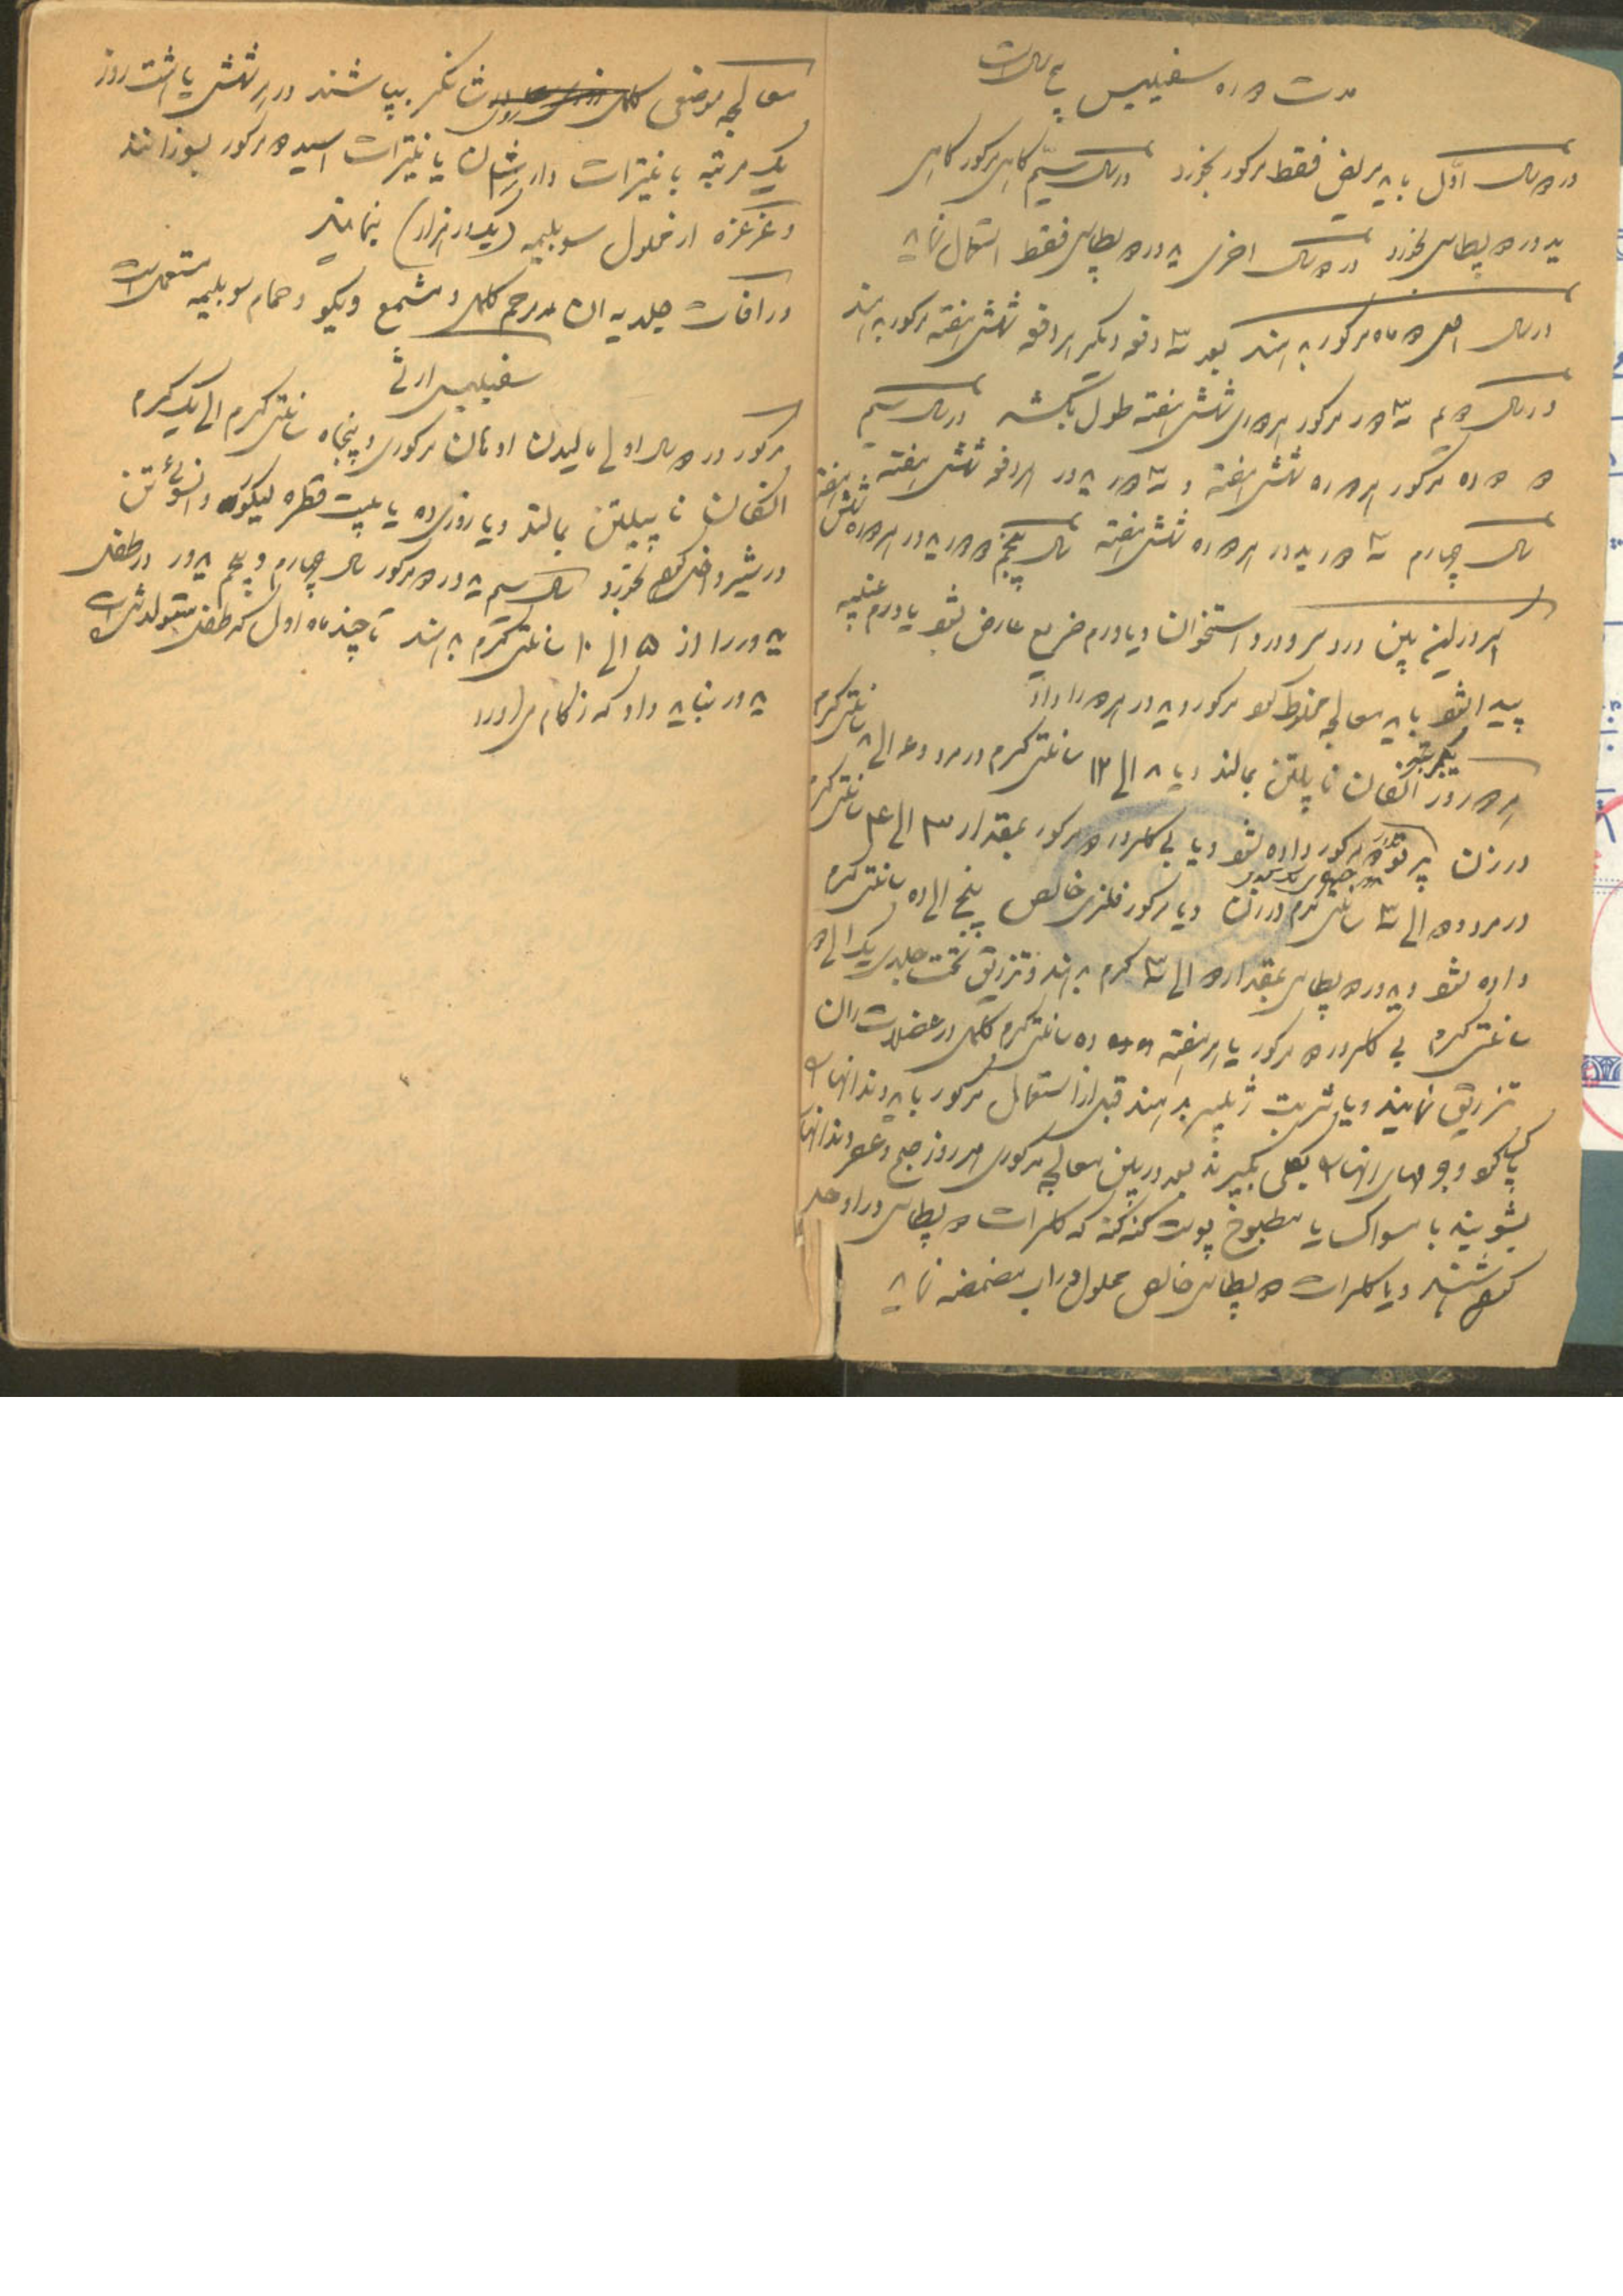 مدت دوره سفیلیس پنج سال است
در دو سال اول باید مریض فقط مرکور بخورد در سال سیم گاهی مرکور گاهی
یدور دو پطاس بخورد در دو سال اخری یدور دو پطاس فقط استعمال نماید
در سال اول دو ماه مرکور بدهند بعد سه دفعه دیگر هر دفعه شش هفته مرکور بدهند
در سال دویم سه دوره مرکور هر دوره شش هفته طول بکشد در سال سیم
دو دوره مرکور هر دوره شش هفته و سه دوره یدور هر دفعه شش هفته
سال چهارم سه دوره یدور هر دوره شش هفته سال پنجم دو دوره یدور هر دوره شش هفته
هر وقت درد سر و درد استخوان و یا ورم عارض شود یا ورم عنبیه
پیدا شود باید معالجه مخلوط کرد مرکور و یدور هر دو را داد
هر دو روز یکمرتبه انگان ناپلتن بمالند و یا ۸ الی ۱۲ سانتی گرم در مرد و ۶ الی ۸ سانتی گرم
در زن پرتو دو مرکور داده شود و یا بی کلرور دو مرکور بمقدار ۳ الی ۴ سانتی گرم
در مرد و ۲ الی ۳ سانتی گرم در زن و یا مرکور فلزی خالص پنج الی ده سانتی گرم
داده شود و یدور دو پطاس بمقدار ۲ الی ۳ گرم بدهند و تزریق تحت جلدی یک الی دو
سانتی گرم بی کلرور دو مرکور یا هر هفته ده سانتی گرم کلمل در عضلات ران
تزریق نمایند و یا شربت ژیبر بدهند قبل از استعمال مرکور باید دندانها را
پاک کرد و جرمهای آنها را بکلی بگیرند بعد در بین معالجه مرکوری هر روز صبح و عصر دندانها
بشویند با مسواک یا مطبوخ پوست گنه گنه که کلرات دو پطاس در او حل
کرده باشند و یا کلرات دو پطاس خالص محلول در آب مضمضه نماید
معالجه موضعی کلمل روی شانکر بپاشند در هر شش یا هشت روز
یک مرتبه با نیترات دارژان یا نیترات اسید دو مرکور بسوزانند
و غرغره از محلول سوبلیمه (یک در هزار) بنمایند
در آفات جلدیه ان مرحم کلمل و مشمع ویگو و حمام سوبلیمه مستعمل است
سفیلیس ارثی
مرکور در دو سال اولی مالیدن اونگان مرکوری و پنجاه سانتی گرم الی یک گرم
انگان ناپلتن بمالند و یا روزی ده یا بیست قطره لیکور وانسوئتن
در شیر داخل کرده بخورد سال سیم یدور دو مرکور سال چهارم و پنجم یدور در طفل
یدور را از ۵ الی ۱۰ سانتی گرم بدهند تا چند ماه اول که طفل متولد شده است
یدور نباید داد که زکام می‌آورد